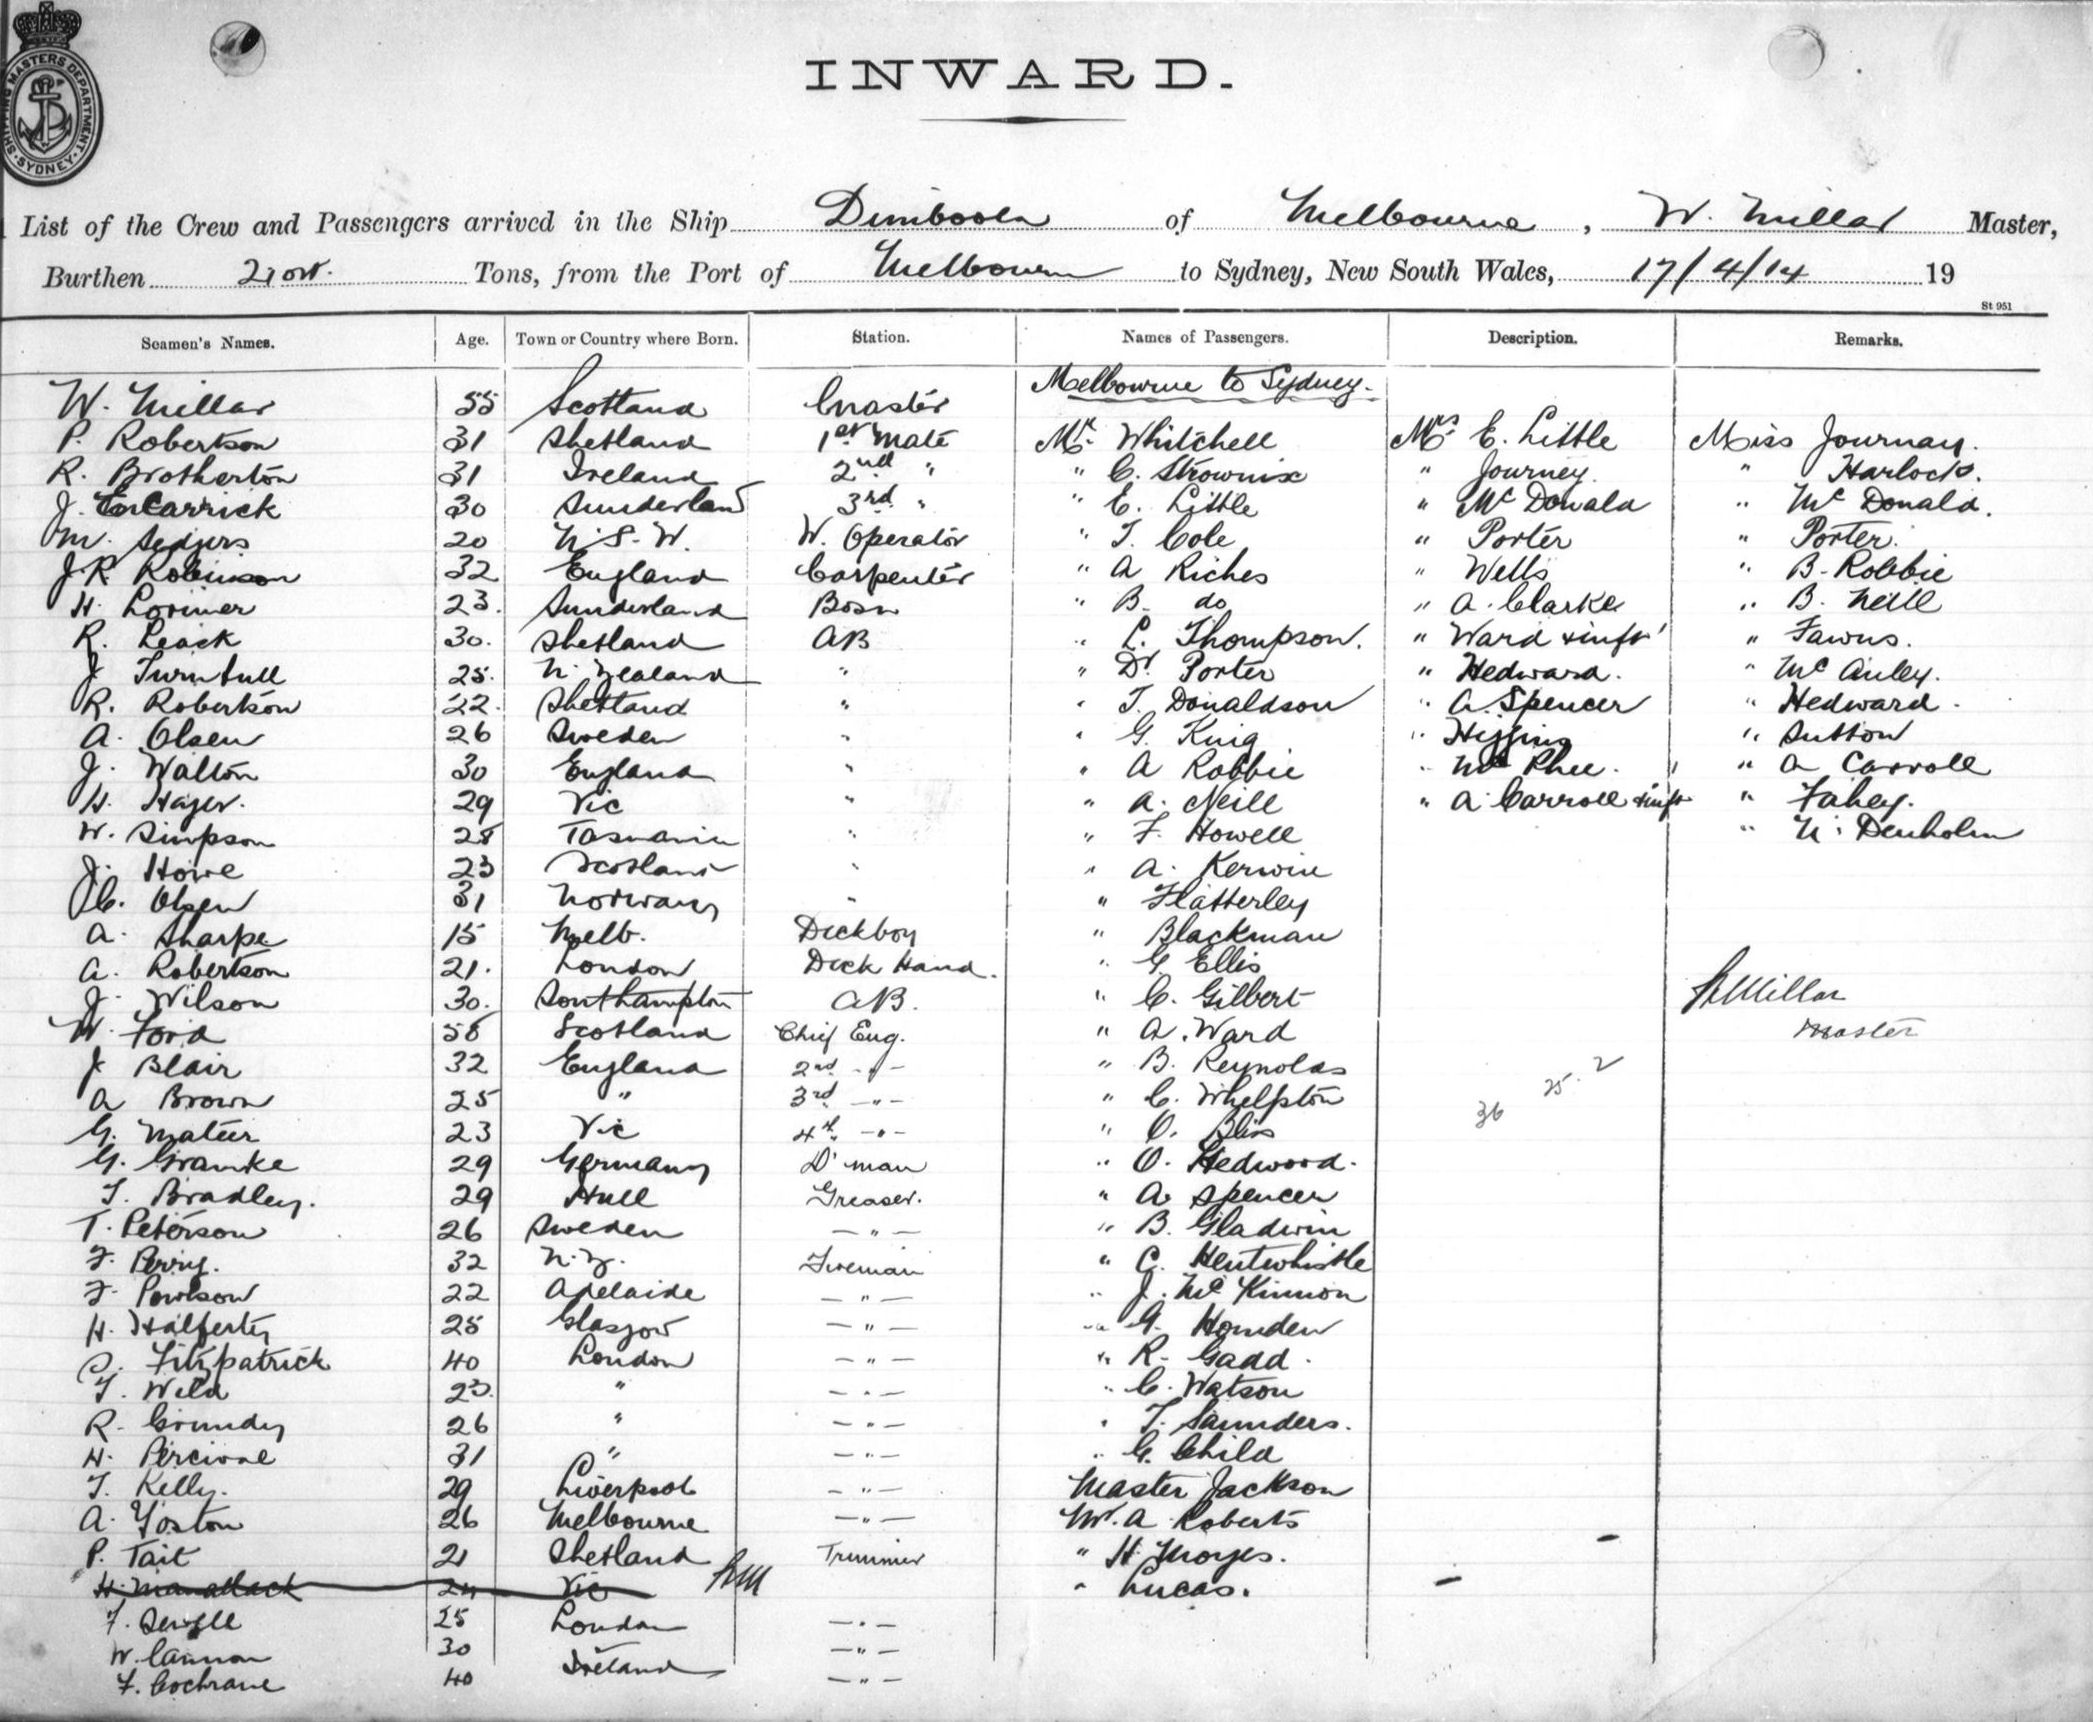 SHIPPING MASTERS DEPARTMENT · SYDNEY ·
INWARD.
List of the Crew and Passengers arrived in the Ship Dimboola of Melbourne, W. Millar Master,
Burthen Tons, from the Port of Melbourne to Sydney, New South Wales, 17/4/14 19
St 951
Seamen's Names. Age. Town or Country where Born. Station. Names of Passengers. Description. Remarks.
Melbourne to Sydney.
W. Millar 55 Scotland Master
P. Robertson 31 Shetland 1st Mate Mr. Whitchell Mrs. E. Little Miss Journay.
R. Brotherton 31 Ireland 2nd " " C. Strownix " Journey " Harlock.
J. Carrick 30 Sunderland 3rd " " E. Little " McDonald " McDonald.
M. Sedgers 20 N.S.W. W. Operator " T. Cole " Porter " Porter.
J.R. Robinson 32 England Carpenter " A Riches " Wells " B. Robbie
H. Lorimer 23. Sunderland Bosn " B. do " A. Clarke " B. Neill
R. Leack 30. Shetland AB " L. Thompson. " Ward & inft " Fawns.
J Turnbull 25. N. Zealand " " Dr Porter " Hedward. " McAuley.
R. Robertson 22. Shetland " " T. Donaldson " A. Spencer " Hedward.
A. Olsen 26 Sweden " " G. King " Higgins " Sutton
J. Walton 30 England " " A Robbie " McPhee. " A Carroll
H. Hager. 29 Vic " " A. Neill " A Carroll & inft " Fahey.
W. Simpson 28 Tasmania " " F. Howell " N. Denholm
J. Howe 23 Scotland " " A. Kerwin
C. Olsen 31 Norway " " Flatterley
A. Sharpe 15 Melb. Deckboy " Blackman
A. Robertson 21. London Deck Hand. " G Ellis
J. Wilson 30. Southampton AB. " C. Gilbert WMillar
W. Ford 58 Scotland Chief Eng. " A. Ward Master
J Blair 32 England 2nd - " - " B. Reynolds
A Brown 25 " 3rd - " - " C. Whelpton 36 25. 2
G. Mateer 23 Vic 4th - " - " O. Bliss
G. Gramke 29 Germany D'man " O. Hedword.
T. Bradley. 29 Hull Greaser. " A. Spencer
T. Peterson 26 Sweden - " - " B. Gladwin
F. Perry. 32 N.Z. Fireman " C. Hentwhistle
F. Powlson 22 Adelaide - " - " J. McKinnon
H. Halferty 25 Glasgow - " - " G. Homden
C. Fitzpatrick 40 London - " - " R. Gadd.
T. Weld 23. " - " - " C. Watson
R. Grundy 26 " - " - " T. Saunders.
H. Percival 31 " - " - " G. Child
T. Kelly. 29 Liverpool - " - Master Jackson
A. Yoston 26 Melbourne - " - Mr. A Roberts
P. Tait 21 Shetland Trimmer " H. Moyes.
H. Manallack 24 Vic WM " Lucas.
F. Sewell 25 London - " -
W. Cannon 30 - " -
F. Cochrane 40 Ireland - " -